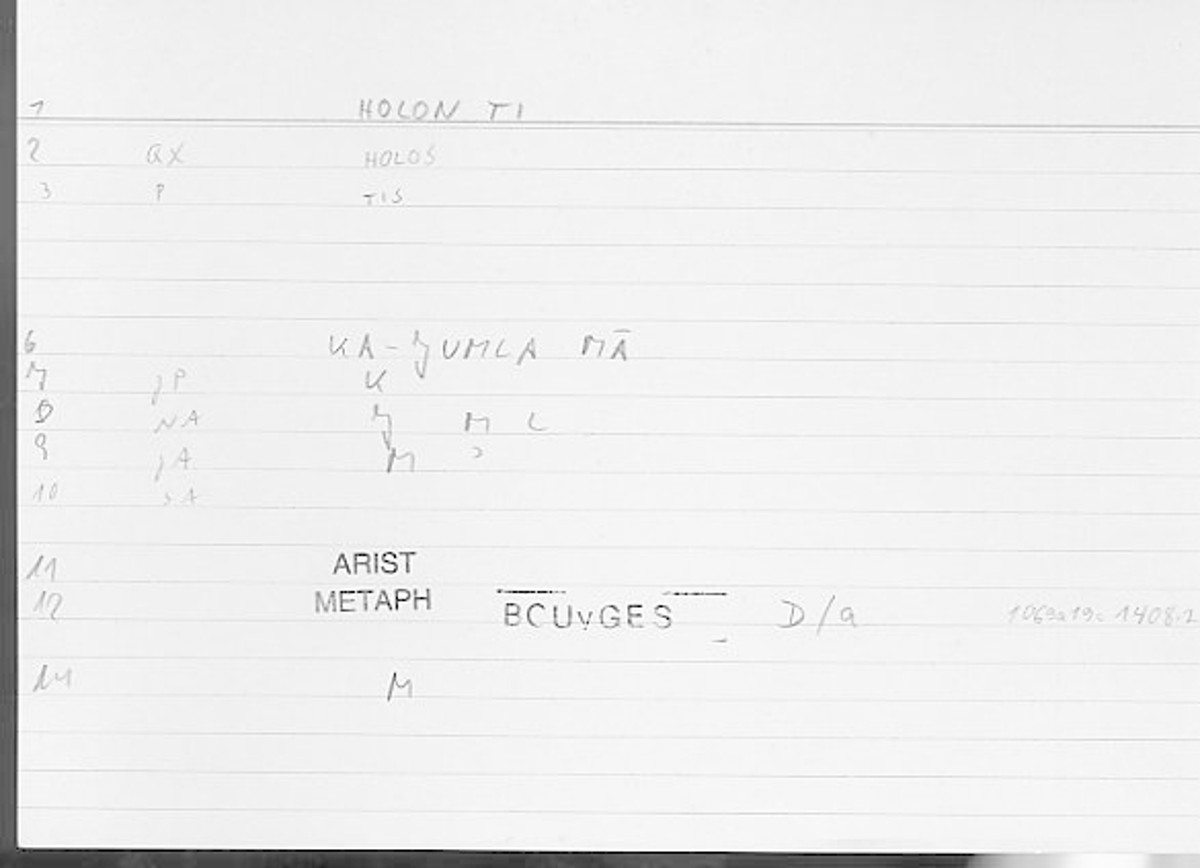 1 HOLON TI
2 QX HOLOS
3 P TIS
6 KA-JUMLA MĀ
7 jP K
8 NA J M L
9 jA M ɔ
10 A
11 ARIST
12 METAPH BCUvGES D/a 1069a19: 1408.2
14 M